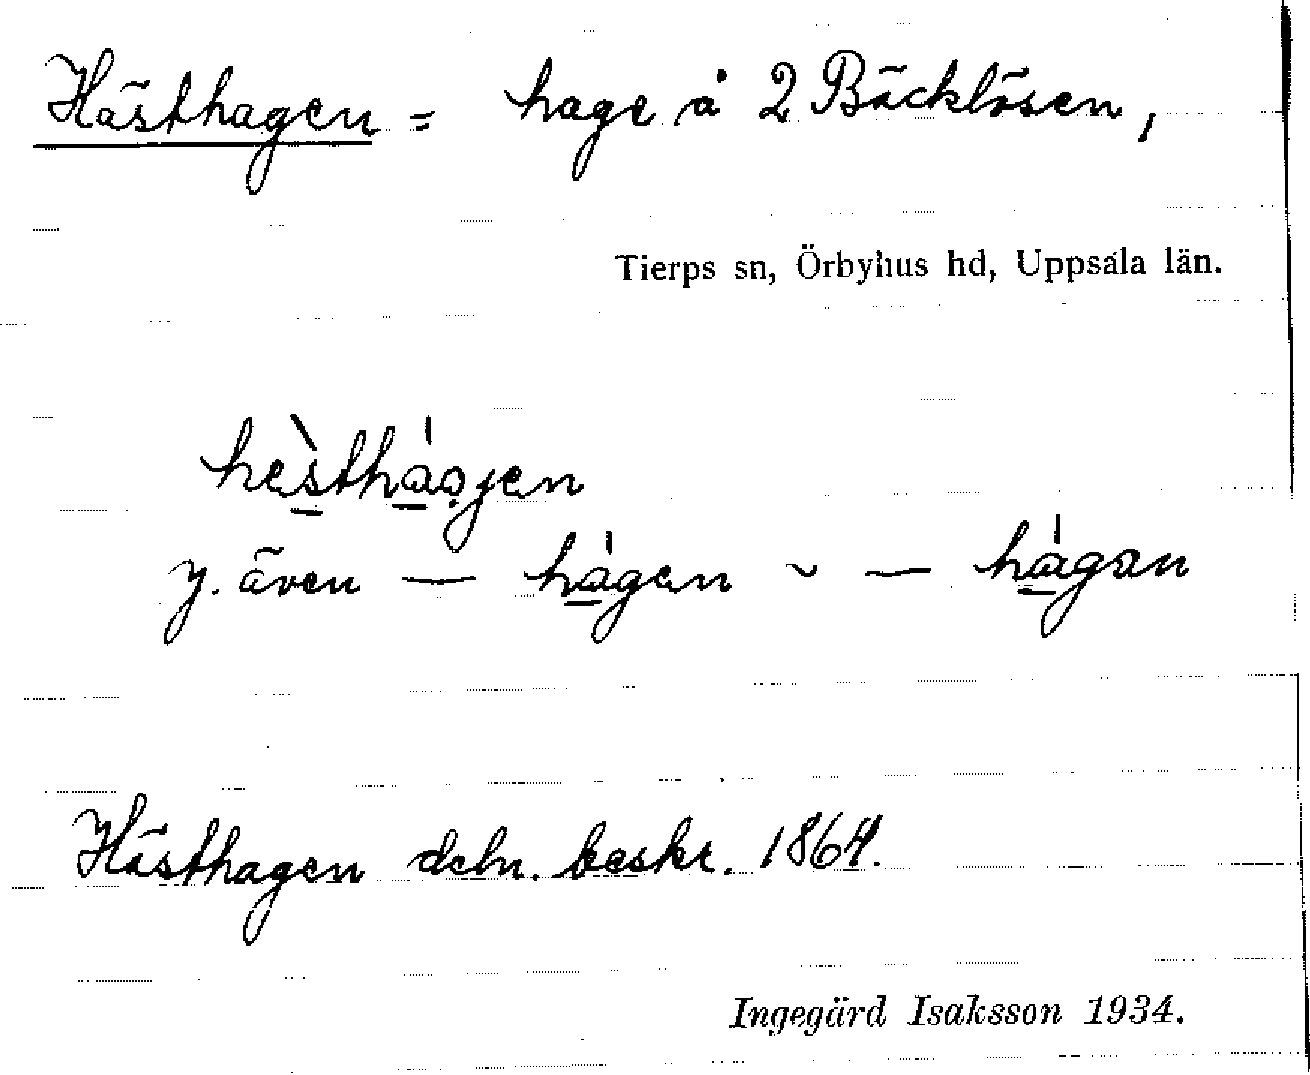 Hästhagen = hage å 2 Bäcklösen,
Tierps sn, Örbyhus hd, Uppsala län.
hèsthágjen
y. även — hágen ~ — hágan
Hästhagen deln. beskr. 1864.
Ingegärd Isaksson 1934.